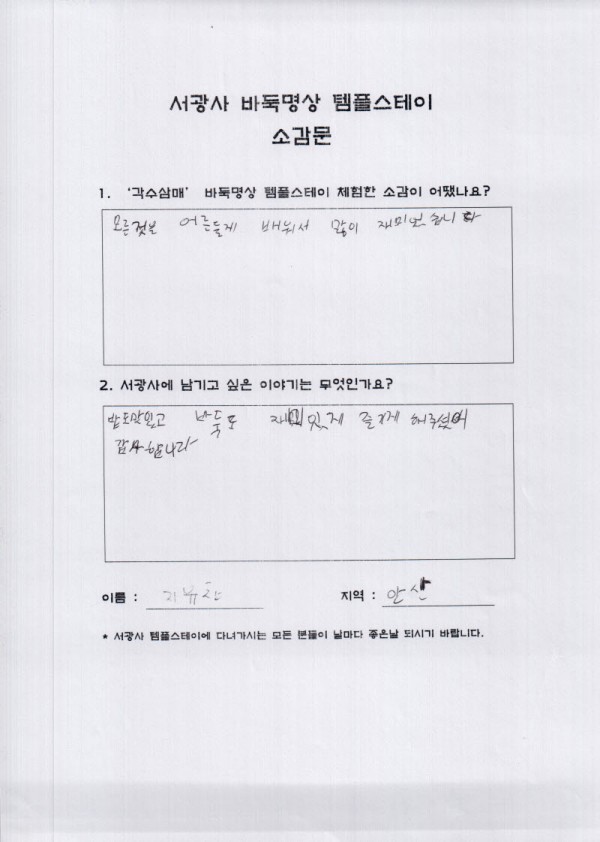 서광사 바둑명상 템플스테이
소감문
1. '각수삼매' 바둑명상 템플스테이 체험한 소감이 어땠나요?
모른것을 어른들게 배워서 많이 재미 습니다
2. 서광사에 남기고 싶은 이야기는 무엇인가요?
밥도맛있고 바둑도 재미있게 즐기게 해주셨어
감사합니다
이름 :
지역 : 안산
* 서광사 템플스테이에 다녀가시는 모든 분들이 날마다 좋은날 되시기 바랍니다.